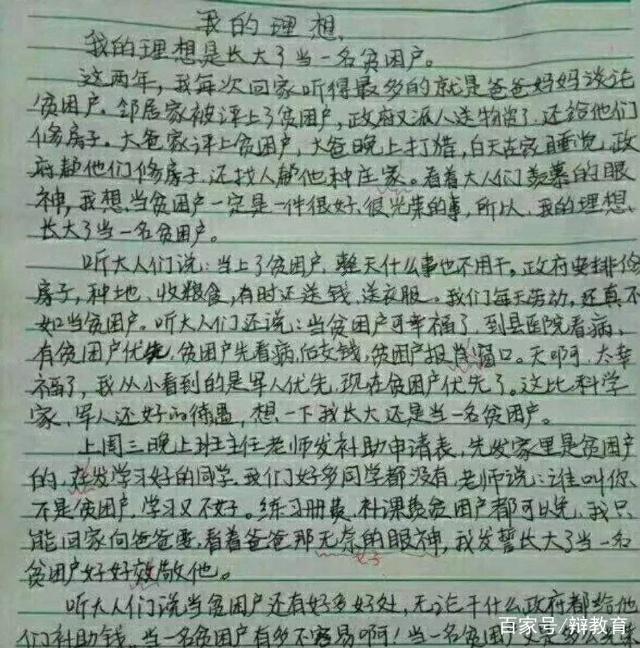 我的理想.
我的理想是长大了当一名贫困户。
这两年,我每次回家听得最多的就是爸爸妈妈谈论
贫困户。邻居家被评上了贫困户,政府又派人送物资了,还给他们
修房子。大爸家评上贫困户,大爸晚上打猎,白天在家睡觉,政
府帮他们修房子,还找人帮他种庄家。看着大人们羡慕的眼
神,我想,当贫困户一定是一件很好、很光荣的事,所以,我的理想、
长大了当一名贫困户。
听大人们说:当上了贫困户,整天什么事也不用干。政府安排修
房子,种地、收粮食,有时还送钱、送衣服。我们每天劳动,还真不
如当贫困户。听大人们还说:当贫困户可幸福了,到县医院看病,
有贫困户优先,贫困户先看病,后交钱,贫困户报肖窗口。天啊,太幸
福了,我从小看到的是军人优先,现在贫困户优先了。这比科学
家、军人还好的待遇,想一下我长大还是当一名贫困户。
上周三晚上班主任老师发补助申请表,先发家里是贫困户
的,在发学习好的同学,我们好多同学都没有,老师说:谁叫你
不是贫困户,学习又不好。练习册费、补课费贫困户都可以免,我只
能回家向爸爸要,看着爸爸那无奈的眼神,我发誓长大了当一名
贫困户好好效敬他。
听大人们说当贫困户还有好多好处,无论干什么政府都给他
们补助钱,当一名贫困户有多不容易啊!当一名贫困户
百家号/辩教育